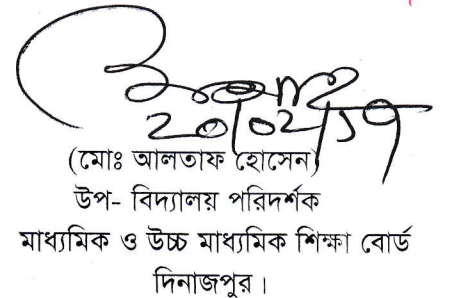 20/02/19
(মোঃ আলতাফ হোসেন)
উপ- বিদ্যালয় পরিদর্শক
মাধ্যমিক ও উচ্চ মাধ্যমিক শিক্ষা বোর্ড
দিনাজপুর।